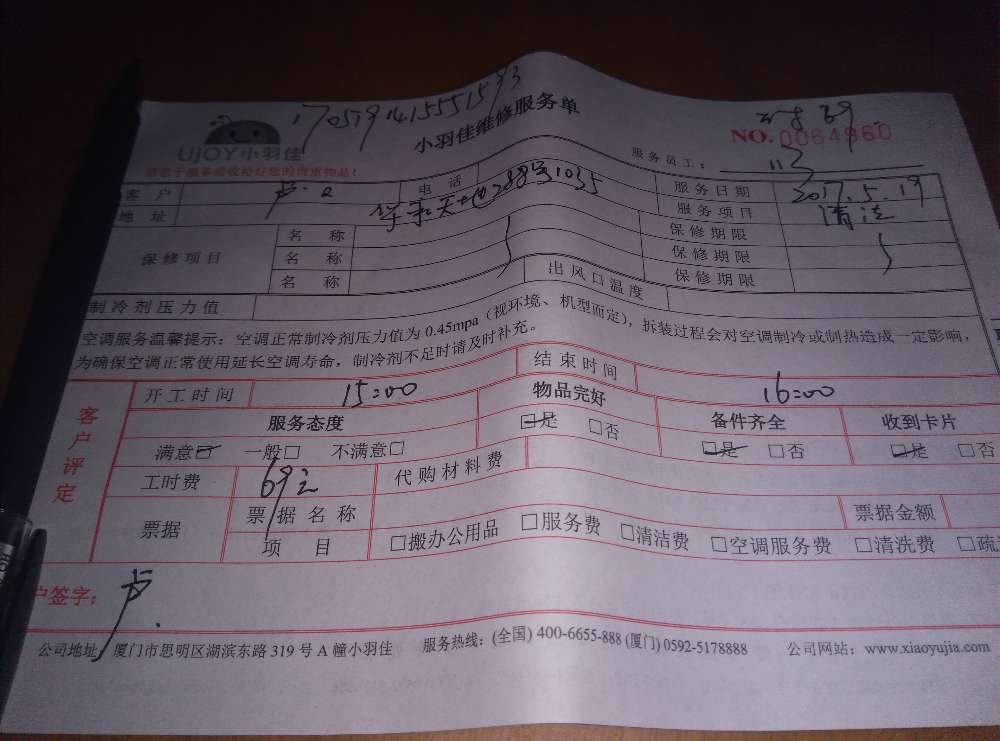 1705791415551593
UJOY小羽佳
小羽佳维修服务单
NO.0064960
服务员工: 113
客 户 卢 电 话 服务日期 2017.5.19
地 址 288号1035 服务项目 清洗
保修项目 名 称 保修期限
名 称 保修期限
名 称 保修期限
制冷剂压力值 出风口温度
空调服务温馨提示:空调正常制冷剂压力值为 0.45mpa(视环境、机型而定),拆装过程会对空调制冷或制热造成一定影响,
为确保空调正常使用延长空调寿命,制冷剂不足时请及时补充。
客户评定
开工时间 15:00 结束时间 16:00
服务态度 物品完好 备件齐全 收到卡片
满意☑ 一般□ 不满意□ ☑是 □否 ☑是 □否 ☑是 □否
工时费 69 代购材料费
票据 票据名称 票据金额
项 目 □搬办公用品 □服务费 □清洁费 □空调服务费 □清洗费 □疏
户签字: 卢
公司地址:厦门市思明区湖滨东路 319 号 A 幢小羽佳 服务热线:(全国) 400-6655-888 (厦门) 0592-5178888 公司网站:www.xiaoyujia.com